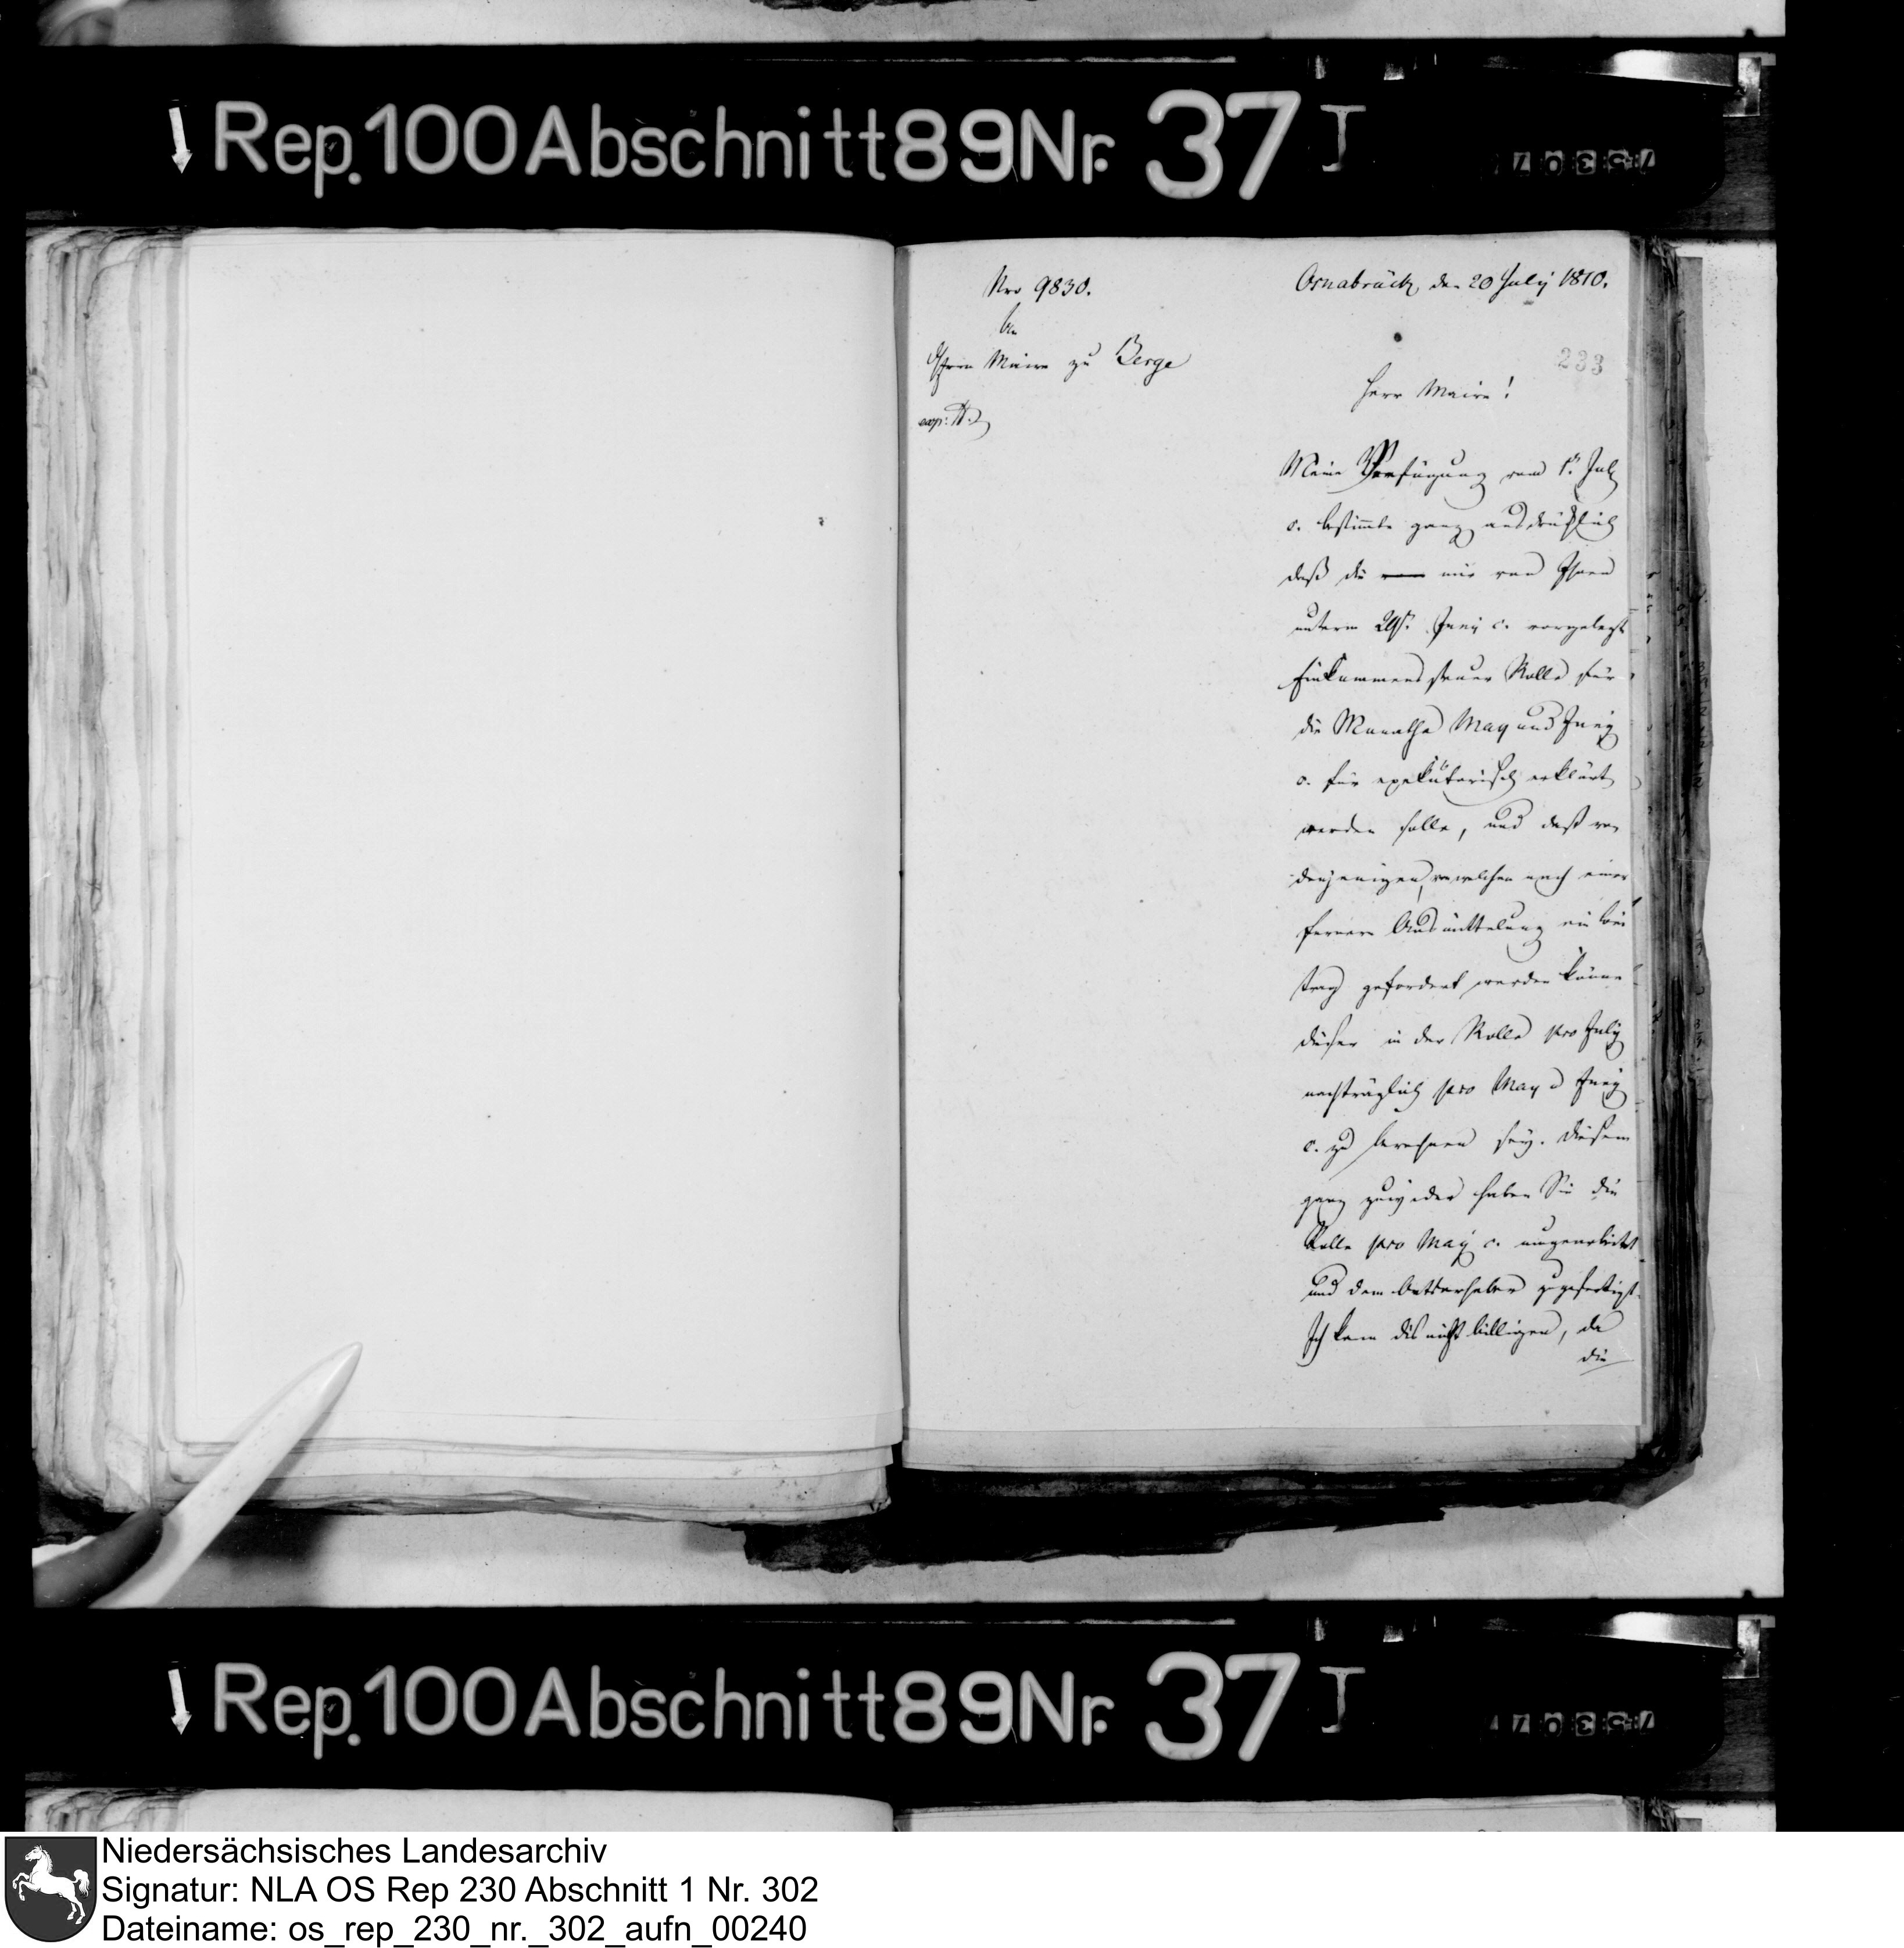 Rep. 100 Abschnitt 89 Nr. 37 I
Nro 9830.
An
Herrn Maire zu Berge
exp:
Osnabrück, den 20 July 1810.
233
Herr Maire!
Meine Verfügung vom 1. July
c. bestimmte ganz ausdrücklich
daß die mir von Ihnen
unterm Juny c. vorgelegte
Einkommensteuer Rolle für
die Monathe May und Juny
c. für exekutorisch erklärt
werden solle, und daß von
denjenigen, von welchen nach einer
fernern Ausmittelung ein Bei
trag gefordert werden könne
dieser in der Rolle pro July
nachträglich pro May u Juny
c. zu berechnen sey. Diesem
ganz zuwider haben Sie die
Rolle pro May c. umgearbeitet
und dem zugefertigt.
Ich kann dis nicht billigen, da
die
Rep. 100 Abschnitt 89 Nr. 37 I
Niedersächsisches Landesarchiv
Signatur: NLA OS Rep 230 Abschnitt 1 Nr. 302
Dateiname: os_rep_230_nr._302_aufn_00240